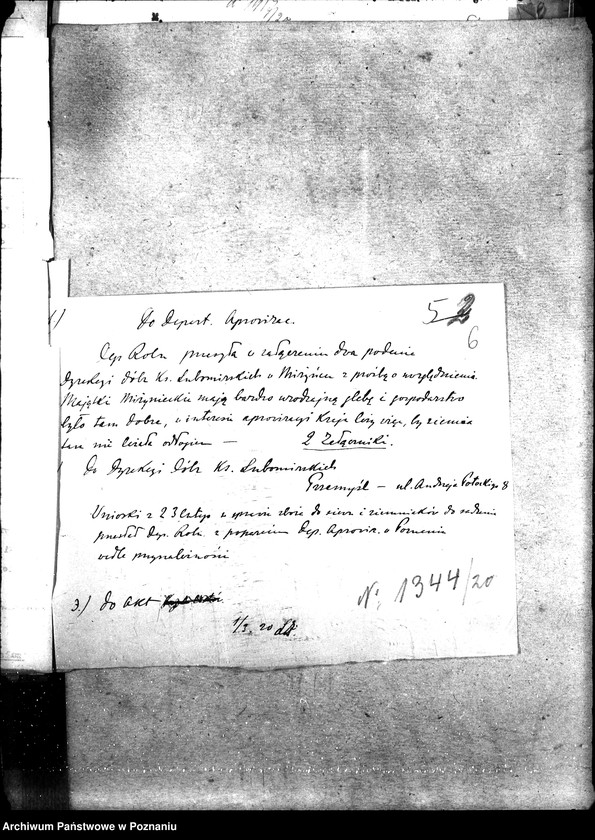 1) Do Depart. Aprowizac.
5
6
Dep. Roln. przesyła w załączeniu dwa podania
Dyrekcji dóbr Ks. Lubomirskich w Miżyńcu z prośbą o uwzględnienie.
Majątki Miżynieckie mają bardzo urodzajną glebę i gospodarstwo
było tam dobre, w interesie aprowizacji Kraju leży więc, by ziemia
tam nie leżała odłogiem —
2 Załączniki.
Do Dyrekcji dóbr Ks. Lubomirskich
Przemyśl — ul. Andrzeja Potockiego 8
Wnioski z 23 lutego w sprawie zboża do siewu i ziemniaków do sadzenia
przesłał Dep. Roln. z poparciem Dep. Aprowiz. w Poznaniu
wedle przynależności
3.) Do akt
1/3. 20
No 1344/20
Archiwum Państwowe w Poznaniu